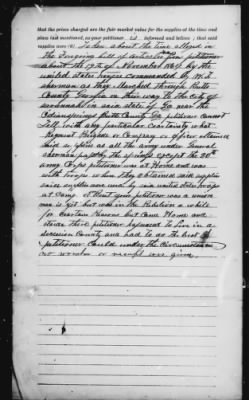 that the prices charged are the fair market value for the supplies at the time and
place last mentioned, as your petitioner is informed and believes; that said
supplies were (8) Taken about the time alleged in
the foregoing bill of
about the 17th of November 1864 by the
united states troops commanded by W.T.
sherman as they marched through Butts
County Georgia on their way to the city of
savannah in said state of Ga near the
Butts County Ga petitioner cannot
tell with any particular certainty what
Regment Brigade or Company or officer obtained
said supplies as all the army under General
sherman passed by the except the 20th
army Corps petitioner was at Home and was
with troops when they obtained said supplies
said supplies were used by said united states troops
at Camp petitioner was a union
man is yet but was in the Rebelion a while
for Certain Reasons but Came Home and
there petitioner hapened to Live in a
secession County and had to do the best
petitioner Could under the Circumstances
no voucher or receipt was given